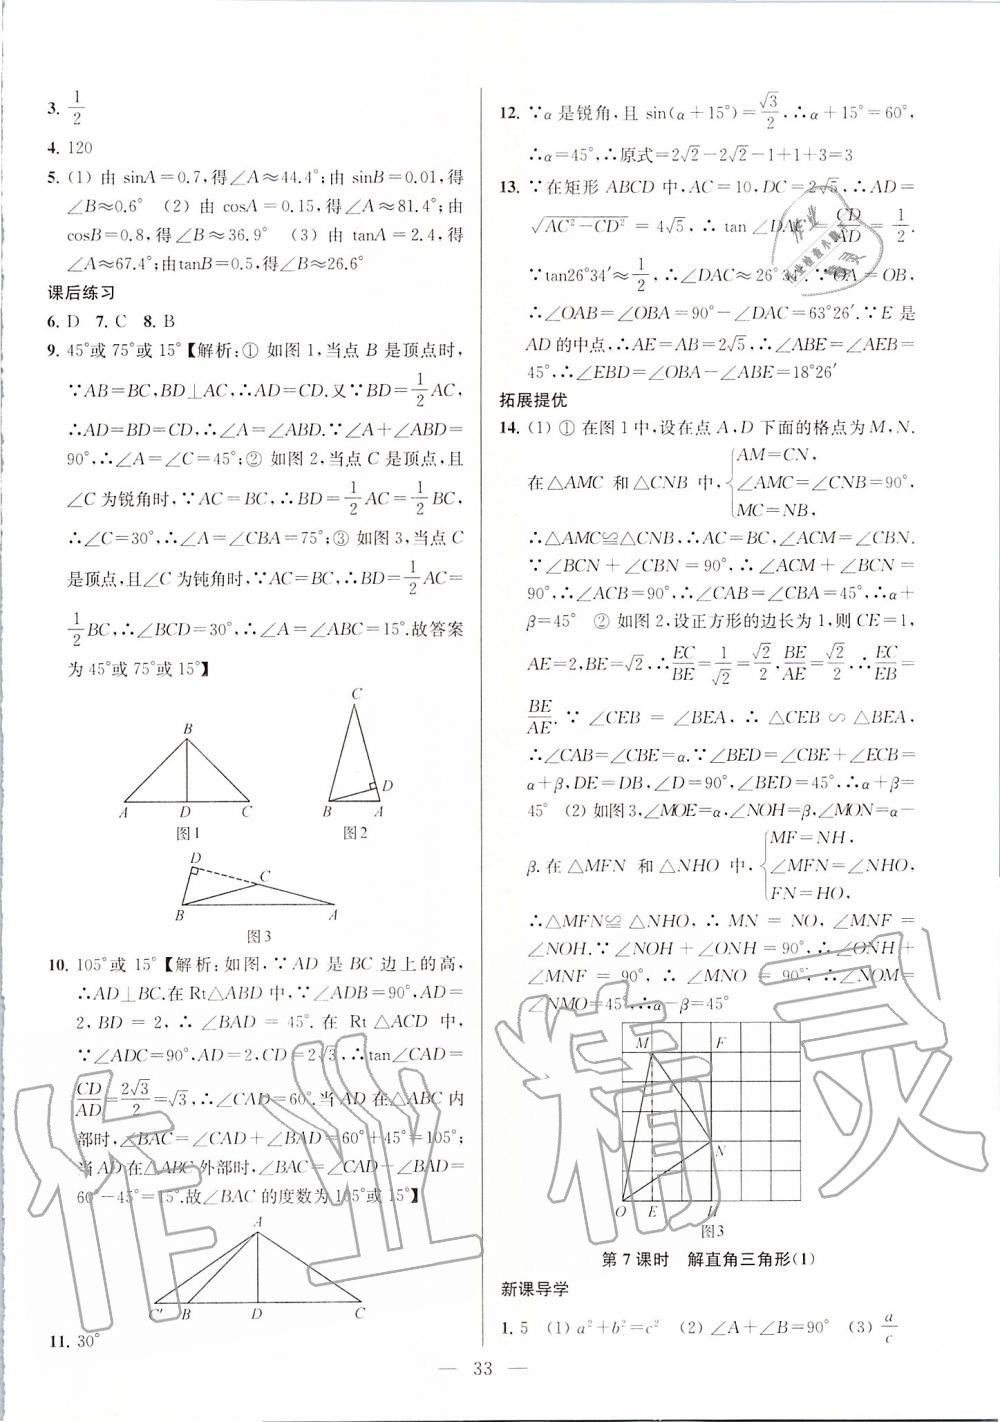 3. 1/2
4. 120
5. (1) 由 sinA=0.7,得∠A≈44.4°;由 sinB=0.01,得
∠B≈0.6° (2) 由 cosA=0.15,得∠A≈81.4°;由
cosB=0.8,得∠B≈36.9° (3) 由 tanA=2.4,得
∠A≈67.4°;由tanB=0.5,得∠B≈26.6°
课后练习
6. D 7. C 8. B
9. 45°或 75°或 15°【解析:① 如图 1,当点 B 是顶点时,
∵AB=BC,BD⊥AC,∴AD=CD.又∵BD=1/2AC,
∴AD=BD=CD,∴∠A=∠ABD.∵∠A+∠ABD=
90°,∴∠A=∠C=45°;② 如图 2,当点 C 是顶点,且
∠C 为锐角时,∵AC=BC,∴BD=1/2AC=1/2BC,
∴∠C=30°,∴∠A=∠CBA=75°;③ 如图 3,当点 C
是顶点,且∠C 为钝角时,∵AC=BC,∴BD=1/2AC=
1/2BC,∴∠BCD=30°,∴∠A=∠ABC=15°.故答案
为 45°或 75°或 15°】
B
A D C
图1
C
D
B A
图2
D
C
B A
图3
10. 105°或 15°【解析:如图,∵AD 是 BC 边上的高,
∴AD⊥BC.在 Rt△ABD 中,∵∠ADB=90°,AD=
2,BD=2,∴∠BAD=45°.在 Rt△ACD 中,
∵∠ADC=90°,AD=2,CD=2√3,∴tan∠CAD=
CD/AD=2√3/2=√3,∴∠CAD=60°.当 AD在△ABC 内
部时,∠BAC=∠CAD+∠BAD=60°+45°=105°;
当 AD在△ABC外部时,∠BAC=∠CAD-∠BAD=
60°-45°=15°.故∠BAC的度数为105°或 15°】
A
C′ B D C
11. 30°
12. ∵α是锐角,且 sin(α+15°)=√3/2,∴α+15°=60°,
∴α=45°,∴原式=2√2-2√2-1+1+3=3
13. ∵在矩形 ABCD 中,AC=10,DC=2√5,∴AD=
√(AC²-CD²)=4√5,∴tan∠DAC=CD/AD=1/2.
∵tan26°34′≈1/2,∴∠DAC≈26°34′.∵OA=OB,
∴∠OAB=∠OBA=90°-∠DAC=63°26′.∵E 是
AD的中点,∴AE=AB=2√5,∴∠ABE=∠AEB=
45°,∴∠EBD=∠OBA-∠ABE=18°26′
拓展提优
14. (1) ① 在图 1 中,设在点 A,D 下面的格点为 M,N.
在△AMC 和△CNB 中,{AM=CN, ∠AMC=∠CNB=90°, MC=NB,
∴△AMC≌△CNB,∴AC=BC,∠ACM=∠CBN.
∵∠BCN+∠CBN=90°,∴∠ACM+∠BCN=
90°,∴∠ACB=90°,∴∠CAB=∠CBA=45°,∴α+
β=45° ② 如图 2,设正方形的边长为 1,则 CE=1,
AE=2,BE=√2,∴EC/BE=1/√2=√2/2.BE/AE=√2/2,∴EC/EB=
BE/AE.∵∠CEB=∠BEA,∴△CEB∽△BEA,
∴∠CAB=∠CBE=α.∵∠BED=∠CBE+∠ECB=
α+β,DE=DB,∠D=90°,∠BED=45°,∴α+β=
45° (2) 如图3,∠MOE=α,∠NOH=β,∠MON=α-
β.在△MFN 和△NHO 中,{MF=NH, ∠MFN=∠NHO=90°, FN=HO,
∴△MFN≌△NHO,∴MN=NO,∠MNF=
∠NOH.∵∠NOH+∠ONH=90°,∴∠ONH+
∠MNF=90°,∴∠MNO=90°,∴∠NOM=
∠NMO=45°,∴α-β=45°
M F
N
O E H
图3
第 7 课时 解直角三角形(1)
新课导学
1. 5 (1) a²+b²=c² (2) ∠A+∠B=90° (3) a/c
— 33 —
作业精灵